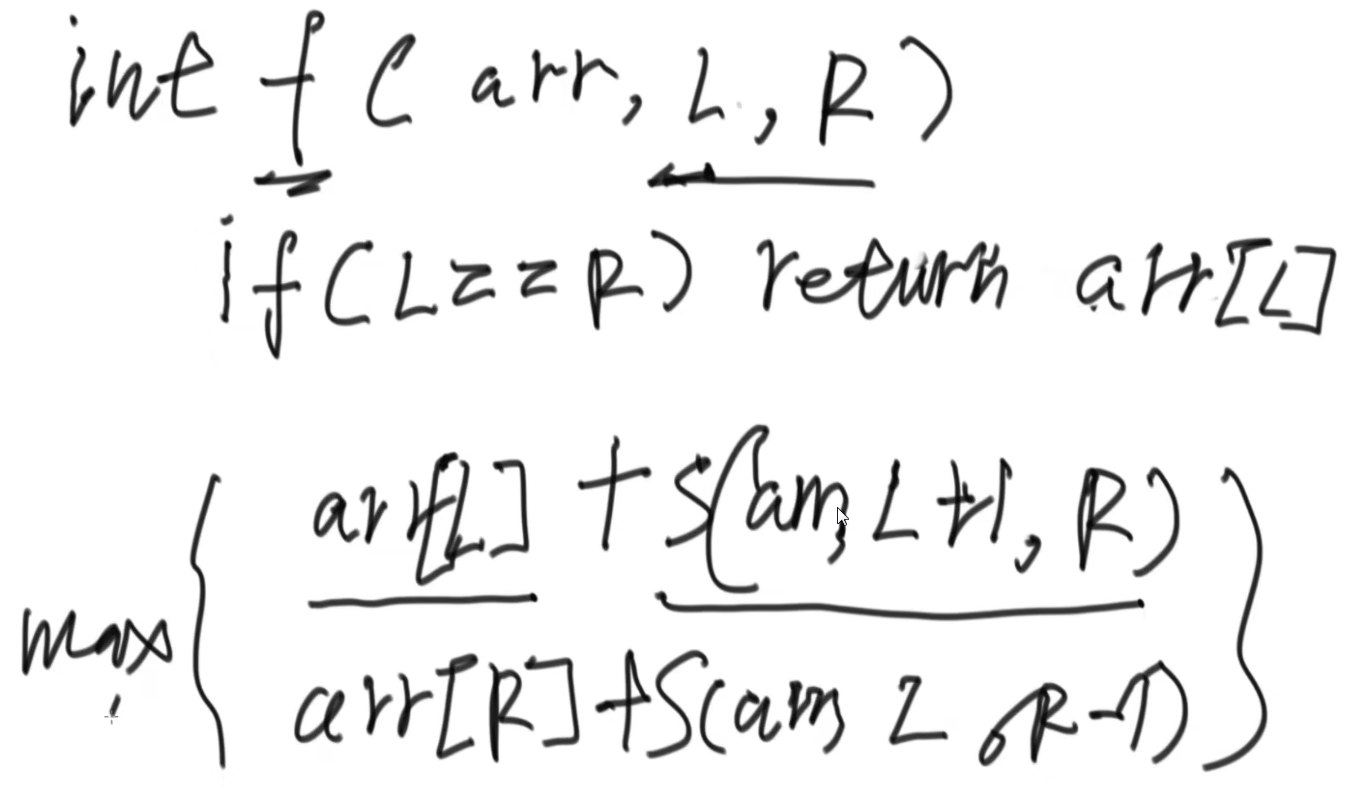 int f( arr, L, R )
if(L==R) return arr[L]
arr[L] + S(arr, L+1, R)
max {
arr[R]+S(arr, L, R-1) }